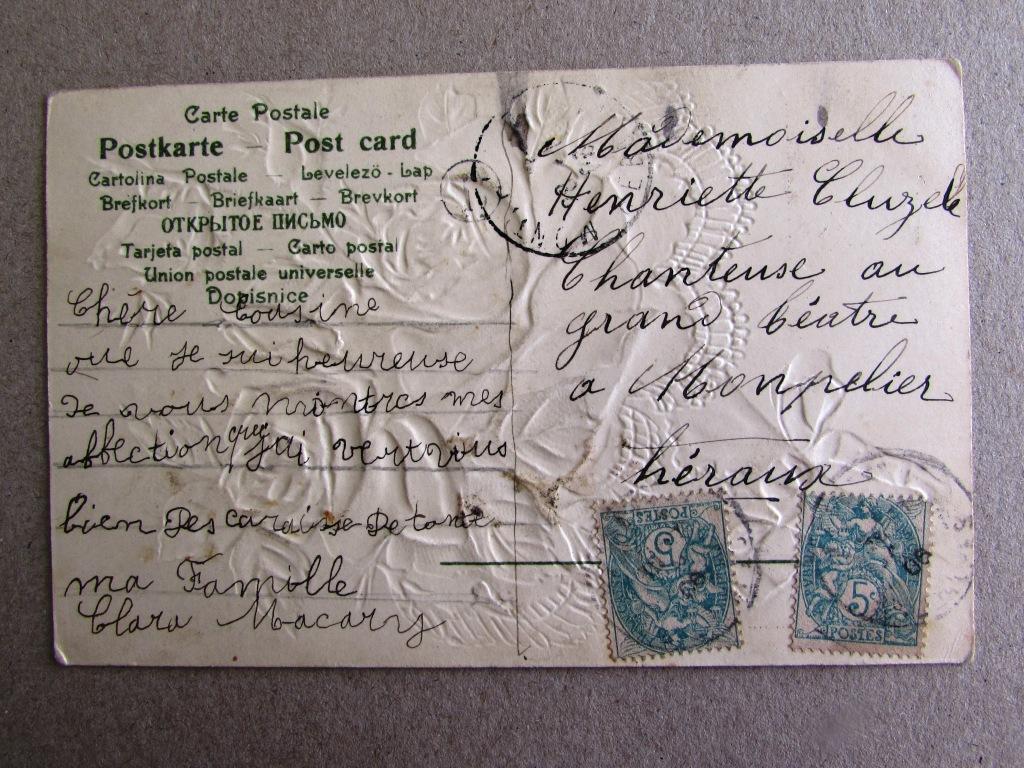 Carte Postale
Postkarte – Post card
Cartolina Postale – Levelezö-Lap
Brefkort – Briefkaart – Brevkort
ОТКРЫТОЕ ПИСЬМО
Tarjeta postal – Carto postal
Union postale universelle
Dopisnice
Chère Cousine
que je sui heureuse
de vous montres mes
affection que j'ai vert vous
bien des caraisse de tout
ma Famille
Clara Macary
Mademoiselle
Henriette Cluzel
Chanteuse au
grand téatre
a Monpelier
héraux
POSTES
5
5c
POSTES